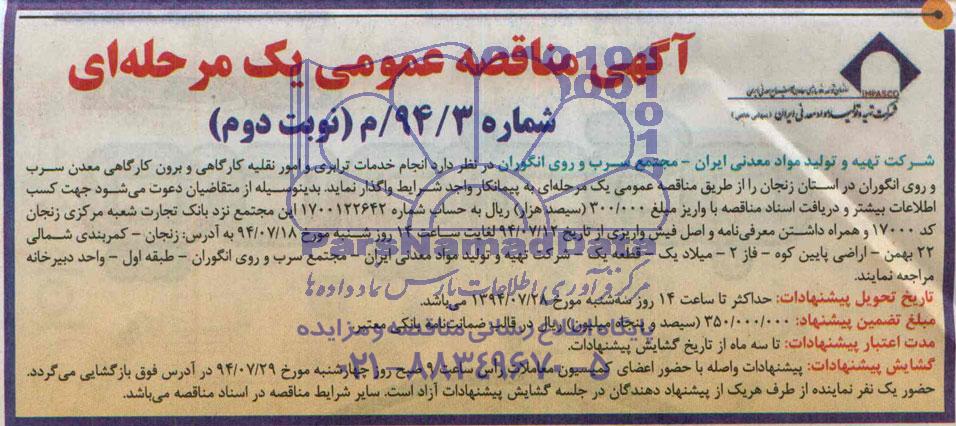 آگهی مناقصه عمومی یک مرحله‌ای
شماره ۹۴/۳/م (نوبت دوم)
IMPASCO
شرکت تهیه و تولید مواد معدنی ایران
شرکت تهیه و تولید مواد معدنی ایران - مجتمع سرب و روی انگوران در نظر دارد انجام خدمات ترابری و امور نقلیه کارگاهی و برون کارگاهی معدن سرب
و روی انگوران در استان زنجان را از طریق مناقصه عمومی یک مرحله‌ای به پیمانکار واجد شرایط واگذار نماید. بدینوسیله از متقاضیان دعوت می‌شود جهت کسب
اطلاعات بیشتر و دریافت اسناد مناقصه با واریز مبلغ ۳۰۰/۰۰۰ (سیصد هزار) ریال به حساب شماره ۱۷۰۰۱۲۲۶۴۲ این مجتمع نزد بانک تجارت شعبه مرکزی زنجان
کد ۱۷۰۰۰ و همراه داشتن معرفی‌نامه و اصل فیش واریزی از تاریخ ۹۴/۰۷/۱۲ لغایت ساعت ۱۴ روز شنبه مورخ ۹۴/۰۷/۱۸ به آدرس: زنجان - کمربندی شمالی
۲۲ بهمن - اراضی پایین کوه - فاز ۲ - میلاد یک - قطعه یک - شرکت تهیه و تولید مواد معدنی ایران - مجتمع سرب و روی انگوران - طبقه اول - واحد دبیرخانه
مراجعه نمایند.
تاریخ تحویل پیشنهادات: حداکثر تا ساعت ۱۴ روز سه‌شنبه مورخ ۱۳۹۴/۰۷/۲۸ می‌باشد.
مبلغ تضمین پیشنهاد: ۳۵۰/۰۰۰/۰۰۰ (سیصد و پنجاه میلیون) ریال در قالب ضمانت‌نامه بانکی معتبر
مدت اعتبار پیشنهادات: تا سه ماه از تاریخ گشایش پیشنهادات.
گشایش پیشنهادات: پیشنهادات واصله با حضور اعضای کمیسیون معاملات راس ساعت ۹ صبح روز چهارشنبه مورخ ۹۴/۰۷/۲۹ در آدرس فوق بازگشایی می‌گردد.
حضور یک نفر نماینده از طرف هریک از پیشنهاد دهندگان در جلسه گشایش پیشنهادات آزاد است. سایر شرایط مناقصه در اسناد مناقصه می‌باشد.
ParsNamadData
مرکز فرآوری اطلاعات پارس نماد داده‌ها
پایگاه اطلاع رسانی مناقصه و مزایده
۰۲۱-۸۸۳۴۹۶۷۰-۵